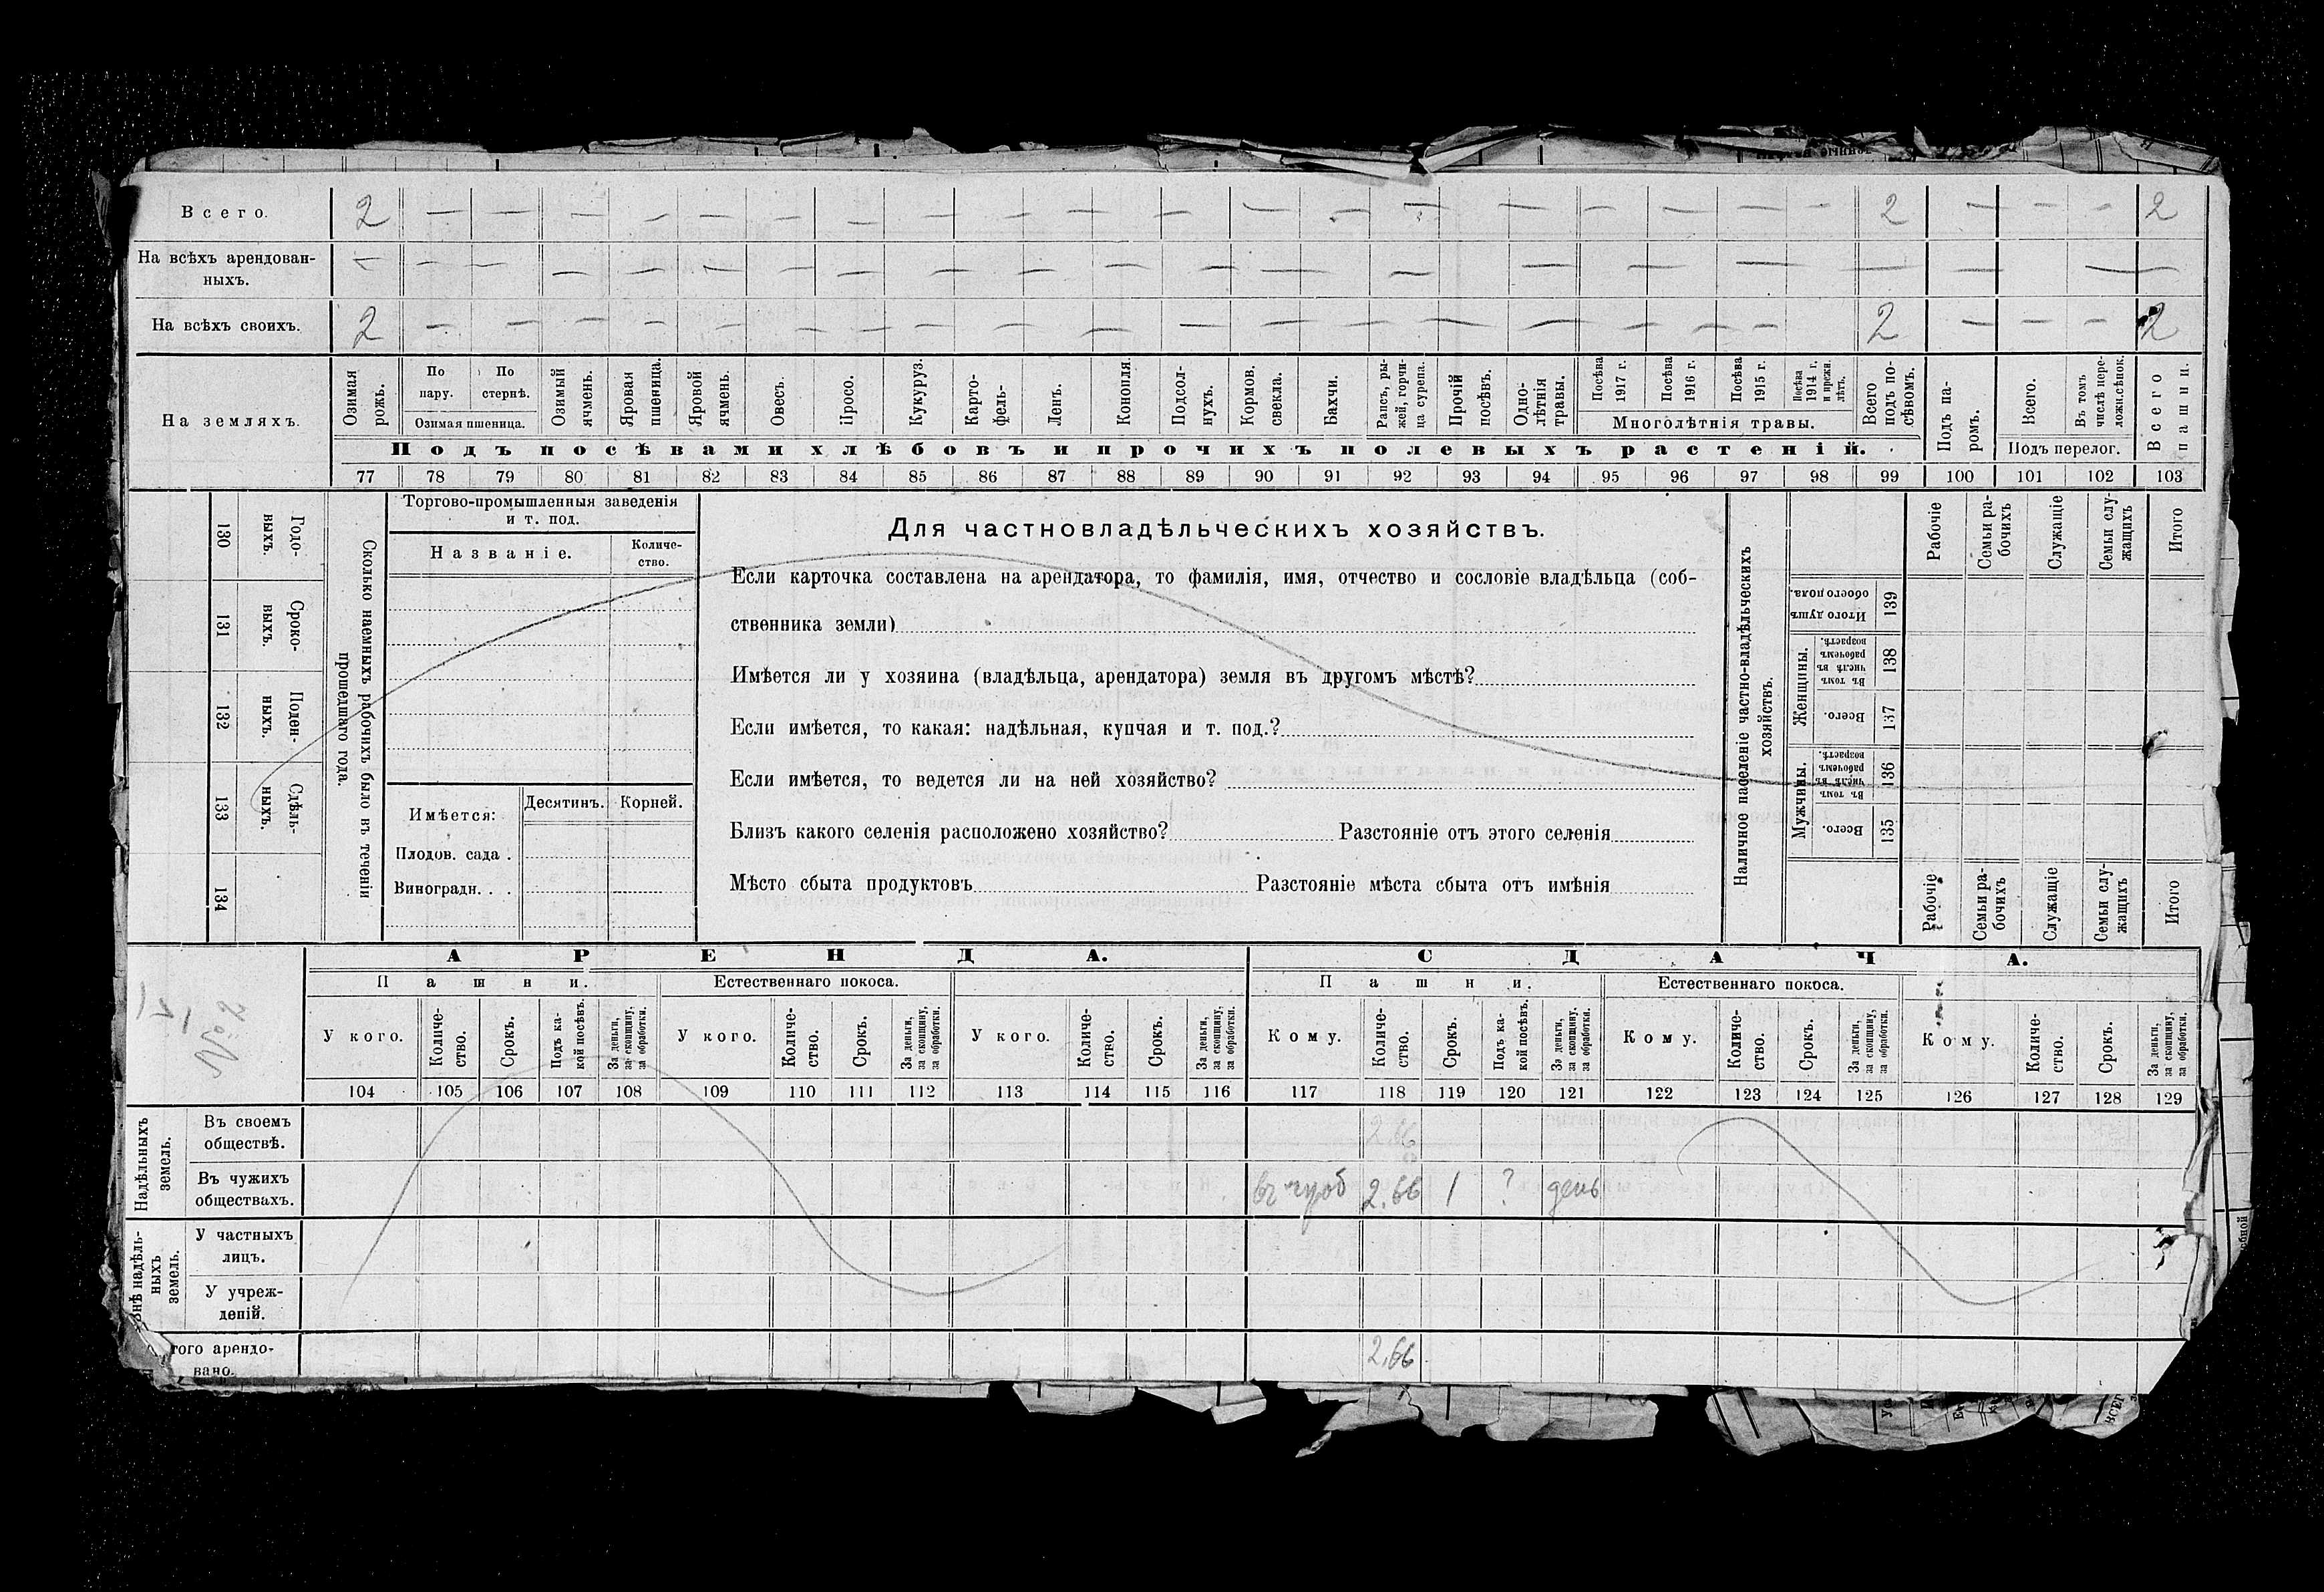 Всего. 2 — — — — — — — — — — — — — — — — — — — — — 2 — — — 2
На всѣхъ арендован-
ныхъ. — — — — — — — — — — — — — — — — — — — — — —
На всѣхъ своихъ. 2 — — — — — — — — — — — — — — — — — — — — 2 — — — 2
На земляхъ.
Озимая рожь.
По пару.
По стернѣ.
Озимая пшеница.
Озимый ячмень.
Яровая пшеница.
Яровой ячмень.
Овесъ.
Просо.
Кукуруз.
Карто-
фель-
Ленъ.
Конопля.
Подсол-
нухъ.
Кормов. свекла.
Бахчи.
Рапсъ, ры-
жей, горчи-
ца сурепа.
Прочій посѣвъ.
Одно-
лѣтнія травы.
Посѣва 1917 г.
Посѣва 1916 г.
Посѣва 1915 г.
Посѣва 1914 г. и прежн. лѣтъ.
Многолѣтнія травы.
Всего подъ по-
сѣвомъ.
Подъ па-
ромъ.
Всего.
Въ томъ числѣ пере-
ложн.сѣнок.
Подъ перелог.
Всего пашни.
Подъ посѣвами хлѣбовъ и прочихъ полевыхъ растеній.
77 78 79 80 81 82 83 84 85 86 87 88 89 90 91 92 93 94 95 96 97 98 99 100 101 102 103
Сколько наемныхъ рабочихъ было въ теченіи
прошедшаго года.
Годо-
выхъ.
130
Сроко-
выхъ.
131
Поден-
ныхъ.
132
Сдѣль-
ныхъ.
133
134
Торгово-промышленныя заведенія
и т. под.
Названіе.
Количе-
ство.
Имѣется:
Десятинъ.
Корней.
Плодов. сада .
Виноградн. . .
Для частновладѣльческихъ хозяйствъ.
Если карточка составлена на арендатора, то фамилія, имя, отчество и сословіе владѣльца (соб-
ственника земли)
Имѣется ли у хозяина (владѣльца, арендатора) земля въ другомъ мѣстѣ?
Если имѣется, то какая: надѣльная, купчая и т. под.?
Если имѣется, то ведется ли на ней хозяйство?
Близъ какого селенія расположено хозяйство? Разстояніе отъ этого селенія
Мѣсто сбыта продуктовъ Разстояніе мѣста сбыта отъ имѣнія
Наличное населеніе частно-владѣльческихъ
хозяйствъ.
Рабочіе
Семьи ра-
бочихъ
Служащіе
Семьи слу-
жащихъ
Итого
Итого душъ обоего пола.
139
Женщины.
Въ томъ числѣ въ рабочемъ возрастѣ.
138
Всего.
137
Мужчины.
Въ томъ числѣ въ рабочемъ возрастѣ.
136
Всего.
135
Рабочіе
Семьи ра-
бочихъ
Служащіе
Семьи слу-
жащихъ
Итого
№ 2
АРЕНДА.
СДАЧА.
Пашни.
Естественнаго покоса.
Пашни.
Естественнаго покоса.
У кого.
Количе-
ство.
Срокъ.
Подъ ка-
кой посѣвъ.
За деньги, за скопщину, за обработки.
У кого.
Количе-
ство.
Срокъ.
За деньги, за скопщину, за обработки.
У кого.
Количе-
ство.
Срокъ.
За деньги, за скопщину, за обработки.
Кому.
Количе-
ство.
Срокъ.
Подъ ка-
кой посѣвъ.
За деньги, за скопщину, за обработки.
Кому.
Количе-
ство.
Срокъ.
За деньги, за скопщину, за обработки.
Кому.
Количе-
ство.
Срокъ.
За деньги, за скопщину, за обработки.
104 105 106 107 108 109 110 111 112 113 114 115 116 117 118 119 120 121 122 123 124 125 126 127 128 129
Надѣльныхъ земель.
Въ своемъ
обществѣ. 2,66
Въ чужихъ
обществахъ. 2,66 1 ? день
Внѣ надѣль-
ныхъ земель.
У частныхъ
лицъ.
У учреж-
деній.
того арендо-
вано. 2,66